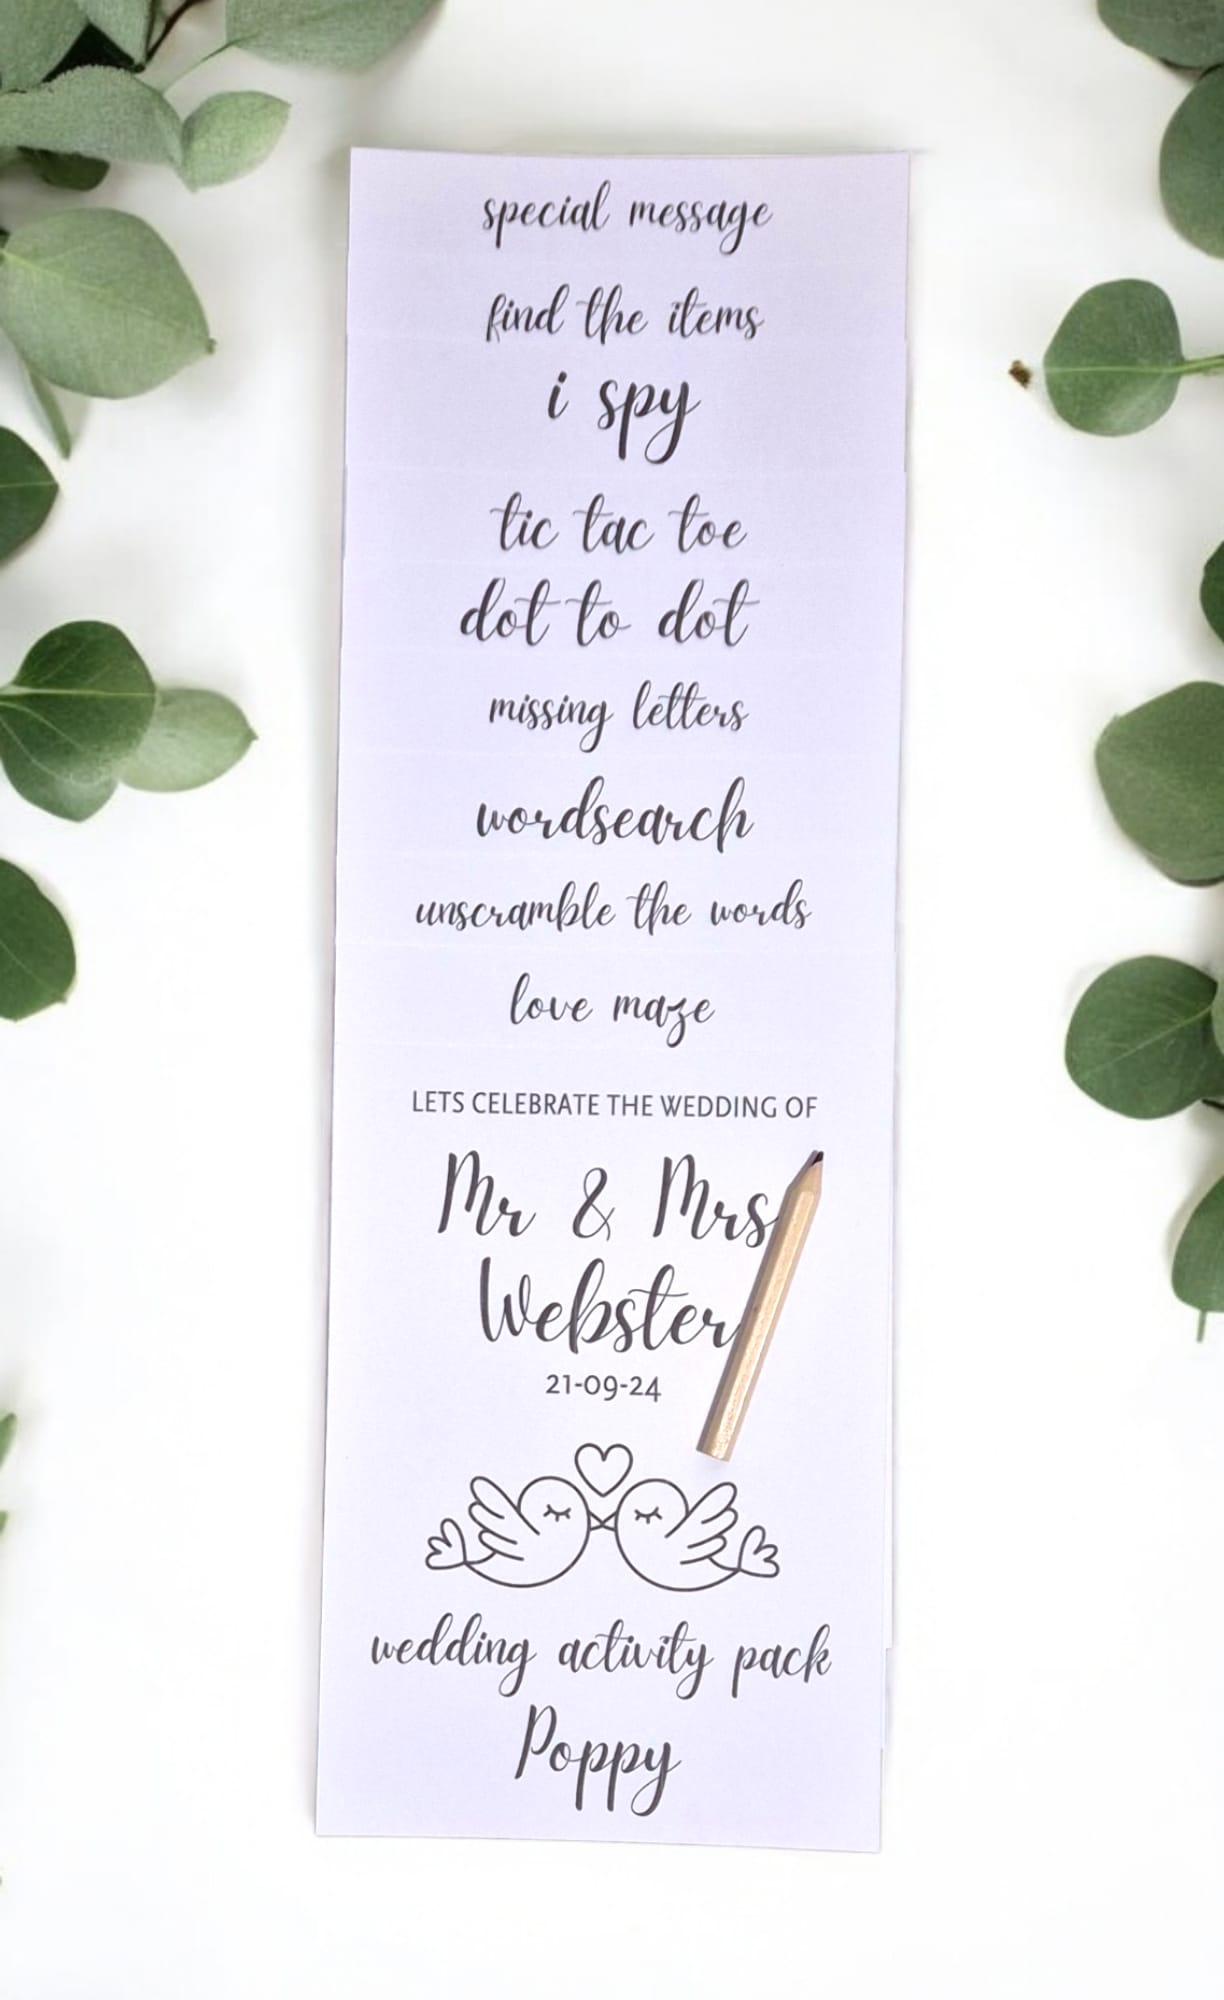 special message
find the items
i spy
tic tac toe
dot to dot
missing letters
wordsearch
unscramble the words
love maze
LETS CELEBRATE THE WEDDING OF
Mr & Mrs
Webster
21-09-24
wedding activity pack
Poppy